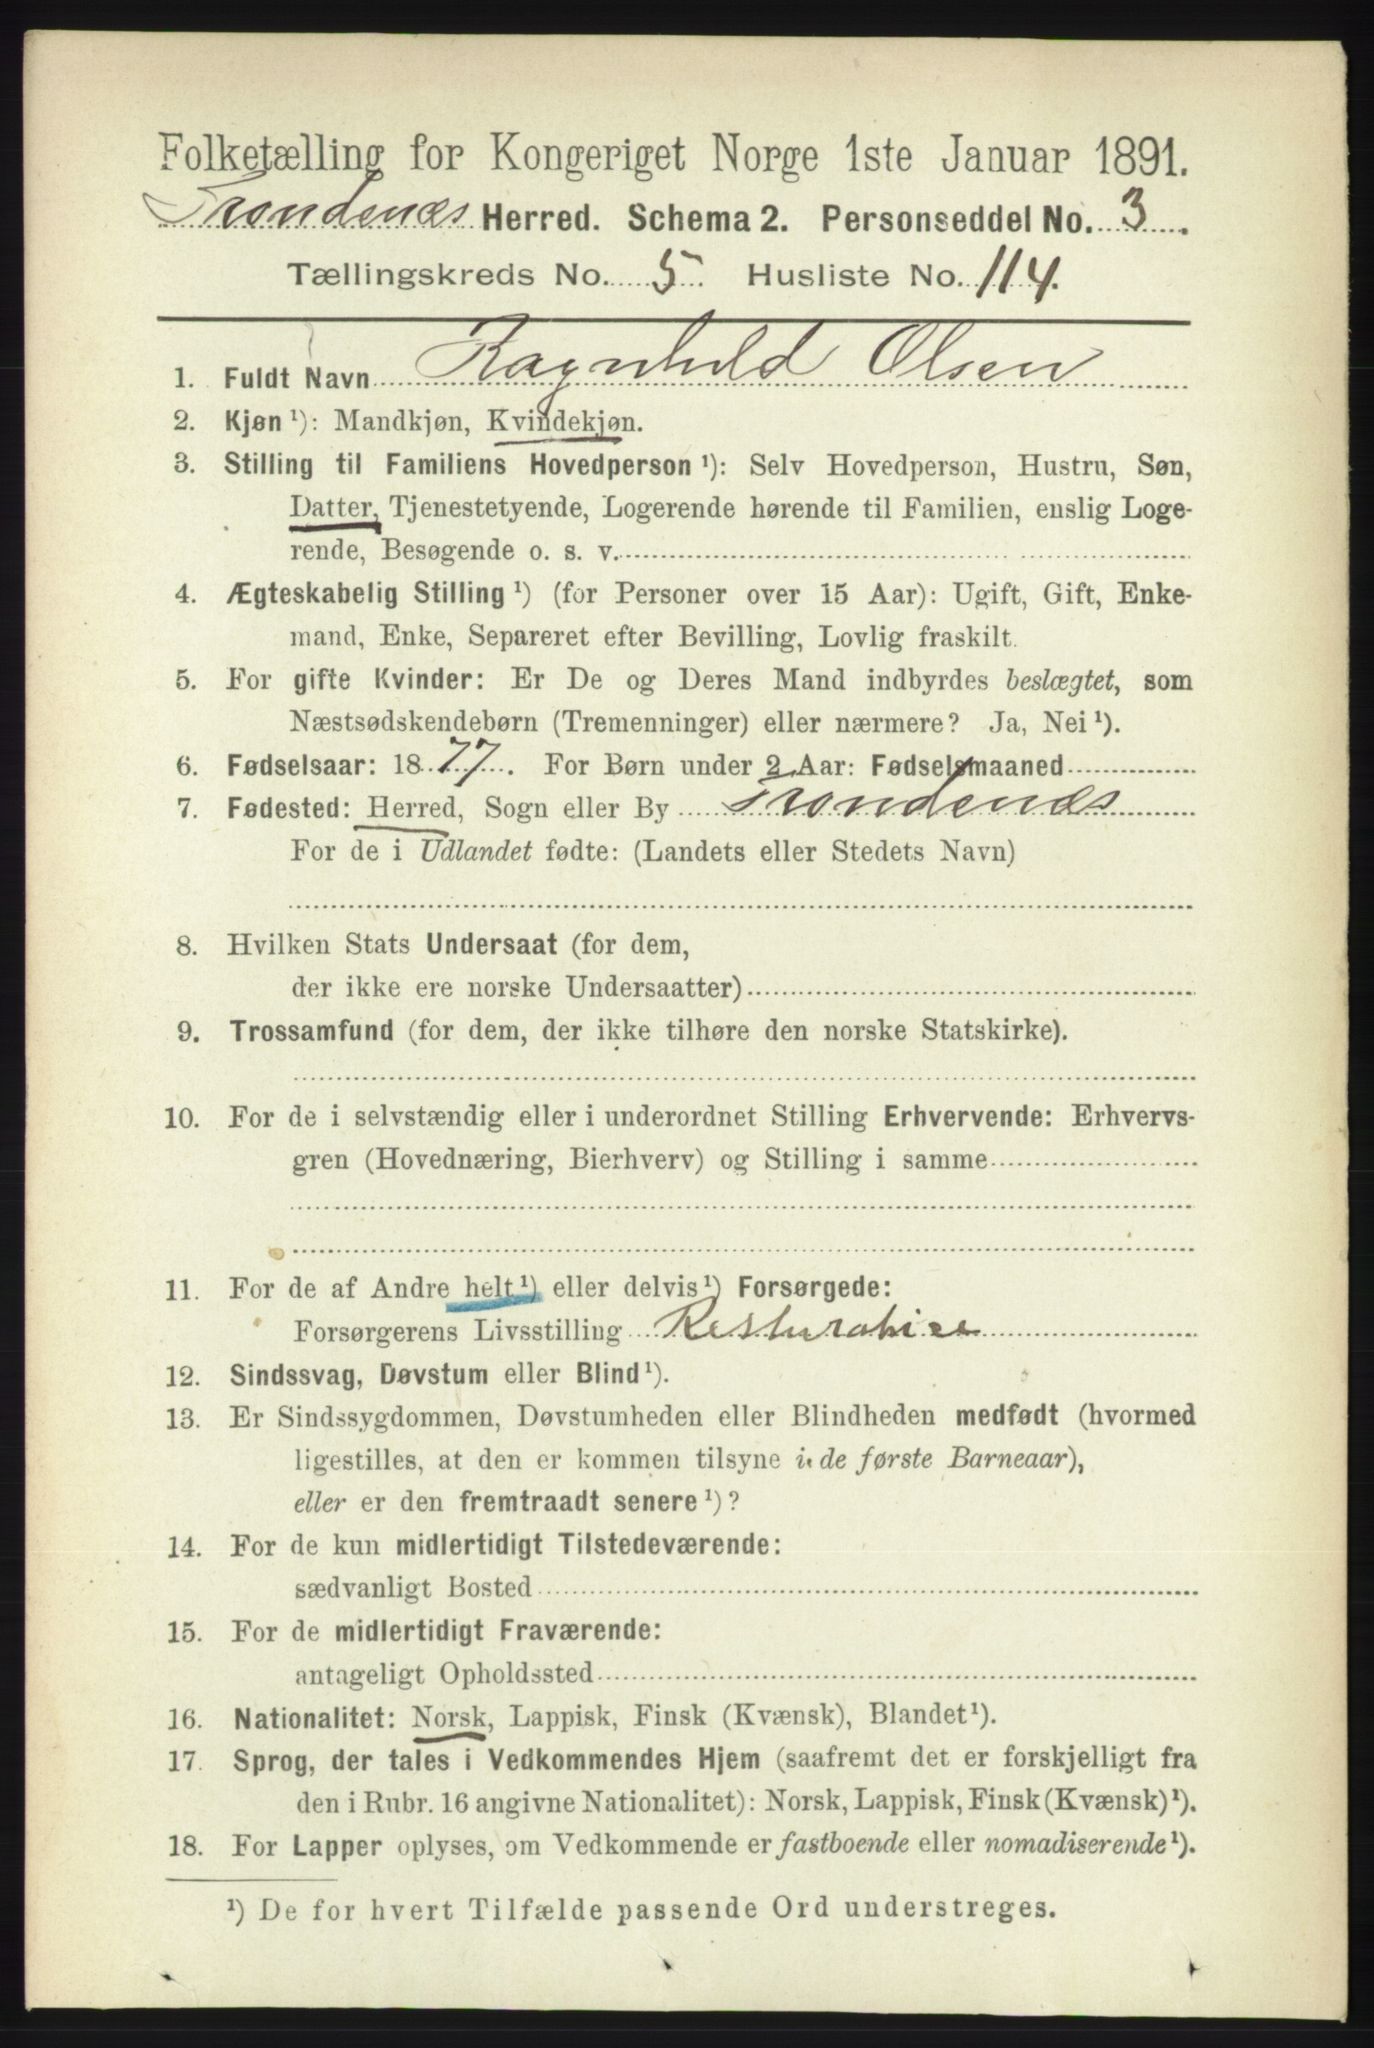 Folketælling for Kongeriget Norge 1ste Januar 1891.
Trondenæs Herred. Schema 2. Personseddel No. 3.
Tællingskreds No. 5 Husliste No. 114.
1. Fuldt Navn Ragnhild Olsen
2. Kjøn ¹): Mandkjøn, Kvindekjøn.
3. Stilling til Familiens Hovedperson ¹): Selv Hovedperson, Hustru, Søn,
Datter, Tjenestetyende, Logerende hørende til Familien, enslig Loge-
rende, Besøgende o. s. v.
4. Ægteskabelig Stilling ¹) (for Personer over 15 Aar): Ugift, Gift, Enke-
mand, Enke, Separeret efter Bevilling, Lovlig fraskilt.
5. For gifte Kvinder: Er De og Deres Mand indbyrdes beslægtet, som
Næstsødskendebørn (Tremenninger) eller nærmere? Ja, Nei ¹).
6. Fødselsaar: 1877. For Børn under 2 Aar: Fødselsmaaned
7. Fødested: Herred, Sogn eller By Trondenæs
For de i Udlandet fødte: (Landets eller Stedets Navn)
8. Hvilken Stats Undersaat (for dem,
der ikke ere norske Undersaatter)
9. Trossamfund (for dem, der ikke tilhøre den norske Statskirke).
10. For de i selvstændig eller i underordnet Stilling Erhvervende: Erhvervs-
gren (Hovednæring, Bierhverv) og Stilling i samme
11. For de af Andre helt ¹) eller delvis ¹) Forsørgede:
Forsørgerens Livsstilling
12. Sindssvag, Døvstum eller Blind ¹).
13. Er Sindssygdommen, Døvstumheden eller Blindheden medfødt (hvormed
ligestilles, at den er kommen tilsyne i de første Barneaar),
eller er den fremtraadt senere ¹)?
14. For de kun midlertidigt Tilstedeværende:
sædvanligt Bosted
15. For de midlertidigt Fraværende:
antageligt Opholdssted
16. Nationalitet: Norsk, Lappisk, Finsk (Kvænsk), Blandet ¹).
17. Sprog, der tales i Vedkommendes Hjem (saafremt det er forskjelligt fra
den i Rubr. 16 angivne Nationalitet): Norsk, Lappisk, Finsk (Kvænsk) ¹).
18. For Lapper oplyses, om Vedkommende er fastboende eller nomadiserende ¹).
¹) De for hvert Tilfælde passende Ord understreges.